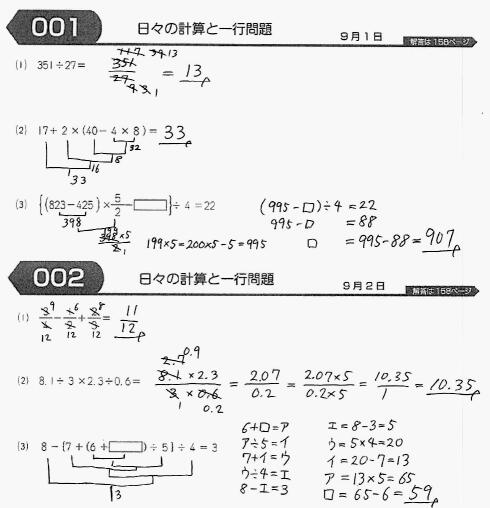 001 日々の計算と一行問題 9月1日 解答は158ページ
(1) 351÷27= 351/27 = 13
(2) 17+2×(40-4×8)= 33
32
8
16
33
(3) {(823-425)×5/2-□}÷4=22
398
199
398×5/2
1
199×5=200×5-5=995
(995-□)÷4=22
995-□=88
□=995-88=907
002 日々の計算と一行問題 9月2日 解答は158ページ
(1) = 11/12
(2) 8.1÷3×2.3÷0.6= 8.1×2.3/3×0.6 = 2.07/0.2 = 2.07×5/0.2×5 = 10.35/1 = 10.35
(3) 8-{7+(6+□)÷5}÷4=3
3
6+□=ア
ア÷5=イ
7+イ=ウ
ウ÷4=エ
8-エ=3
エ=8-3=5
ウ=5×4=20
イ=20-7=13
ア=13×5=65
□=65-6=59